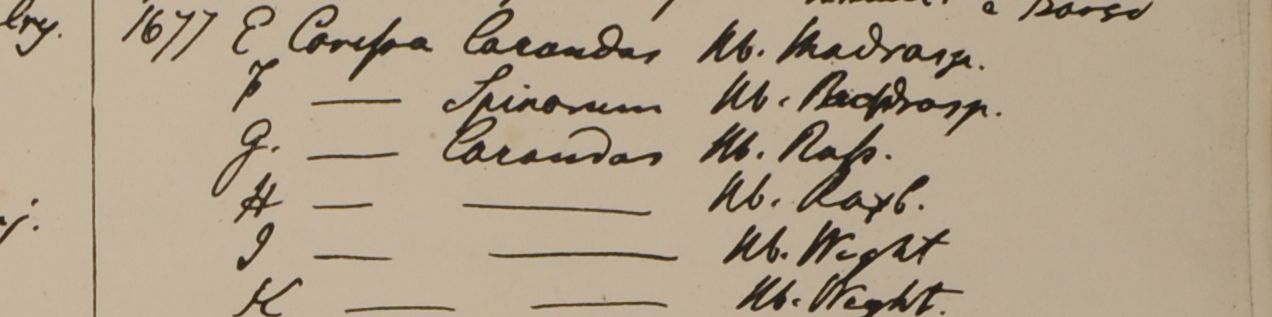 a Borgo
1677 E Carissa Carandas Hb. Madrasp.
F — Spinarum Hb.
G. — Carandas Hb. Russ.
H — — Hb. Roxb.
I — — Hb. Wight
K — — Hb. Wight.